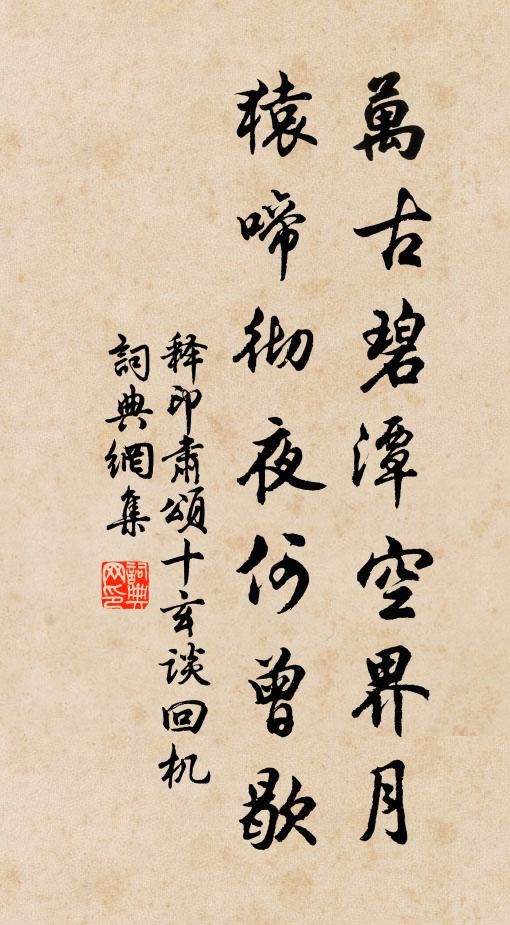 萬古碧潭空界月
猿啼彻夜何曾歇
释印肃頌十玄谈回机
詞典網集
詞典网印